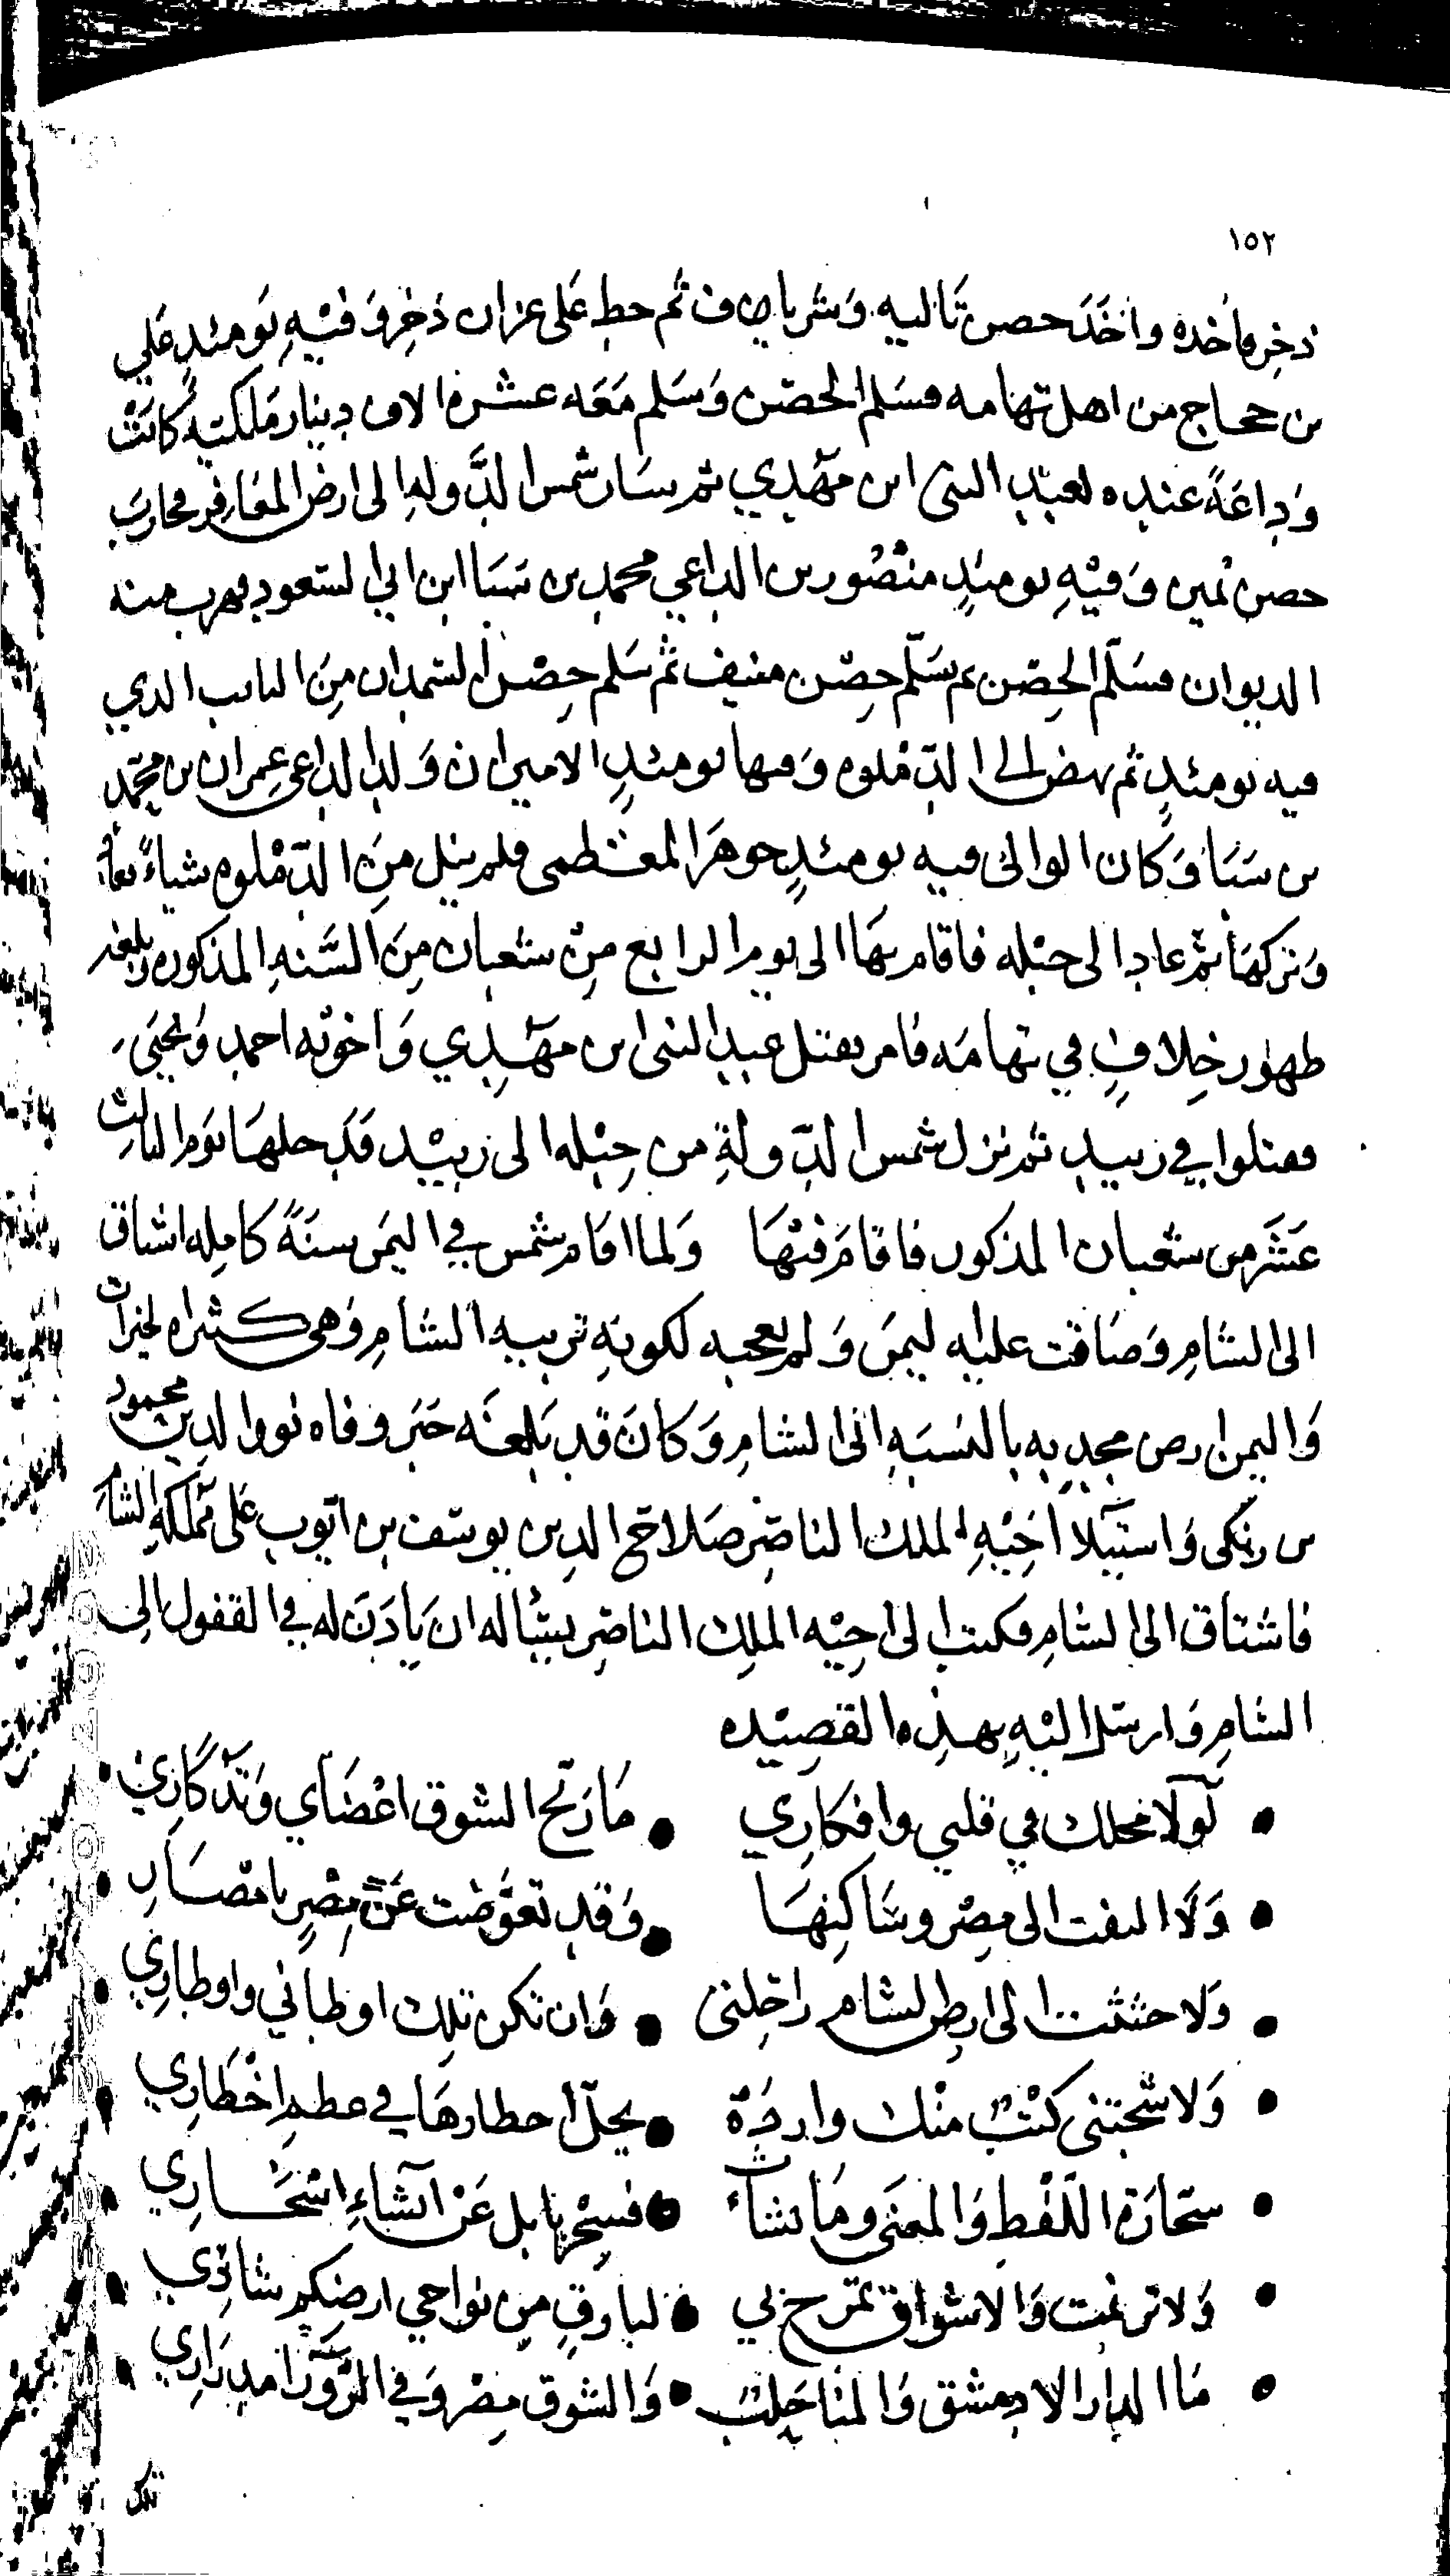 ١٥٢
ذخر فاخده واخَذَ حصن تَاليه وَشرياق ثم حط عَلى عزان ذخِر وَفيْهِ يَومئدٍ عَلي
بن حجاج من اهل تهامه فسَلم الحصْن وَسَلم مَعَه عشرة الاف دينار مَلكيّه كانَتْ
وَداعَةً عنده لعبد النبى ابن مهْدِي ثم سَار شمس الدَّوله الى ارض المعَافِر فحارب
حصن يُمين وَفيْهِ يومئدٍ منصُور بن الداعي محمد بن سَبَا ابن ابى السعود فهرب منه
الديوان فسَلّم الحِصْن ثم تسَلّم حِصْن منيف ثم سَلم حِصْن السَّمدان مِنَ النايب الدي
فيه يومئدٍ ثم نهض الى الدّمْلوه وَفيها يومئدٍ الاميران وَلدا الداعى عِمران بن محمّد
بن سَبَا وَكان الوالى فيه يومئدٍ جوهَر المعَظمى فلم ينل مِنَ الدّمْلوه شياءً فعاد
وَتركهَا ثم عاد الى جبْله فاقام بهَا الى يوم الرابع مِنْ شعبان مِنَ السَّنهِ المذكوره وبلغه
ظهور خِلافٍ في تهامَه فامر بقتل عبد النبى ابن مهْدِي وَاخوته احمد وَيحيَى
فقتلوا في زبيد ثم نزل شمس الدّولةِ من جِبْله الى زبيْد فدَخلهَا يوم الثالث
عَشَر من شعبان المذكور فاقامَ فيْهَا وَلما اقام شمس في اليمَن سنَةً كامِله اشتاق
الى الشَّامِ وَضَاقت عليه ليمَن وَلم يعجبه لكونِهِ تربيه الشَّامِ وَهى كثيراه الخيرات
وَاليمن ارض مجدِبه بالنسبَهِ الى الشام وَكانَ قد بَلغَه خبَر وفاه نور الدين محمود
بن زنكى وَاستيلا اخِيْهِ الملك الناصِر صَلاح الدين يوسف بن ايّوب عَلى مَملكهِ الشام
فاشتاق الى الشام فكتب الى اخِيْه الملِك الناصِر يسْاله ان يَادَنَ له في القفول الى
الشامِ وَارسَل اليْهِ بهذِه القصِيْده
لَولا محلك في قلبي وافكارِي • مَا رَنّح الشوق اعْضَاي وَتَدْكارِيْ
وَلَا التفت الى مِصْر وسَاكِنهَا • وَقد تعَوَّضت عَنْ مِصْرٍ بامْصَارِ
وَلا حثثت الى ارض الشام راحِلتى • وَان تكن تلِك اوطاني واوطارِي
وَلا شجَتنى كتْب منْك واردَة • يحلّ اخطارهَا في عظم اخْطارِي
سَحارَة اللّفْظ وَالمعنَى وَما نشاَت • فسِحْر بابل عَنْ انشاءِ اسْحَارِي
وَلا ترنمت وَالاشواق تمرح بي • لبارقٍ مِن نواحي ارضكم سَارِي
مَا الدار الا دمشق وَالمنَاحلب • وَالشوق مِصْر وَفي الزَّوْرَا مدرَارِي